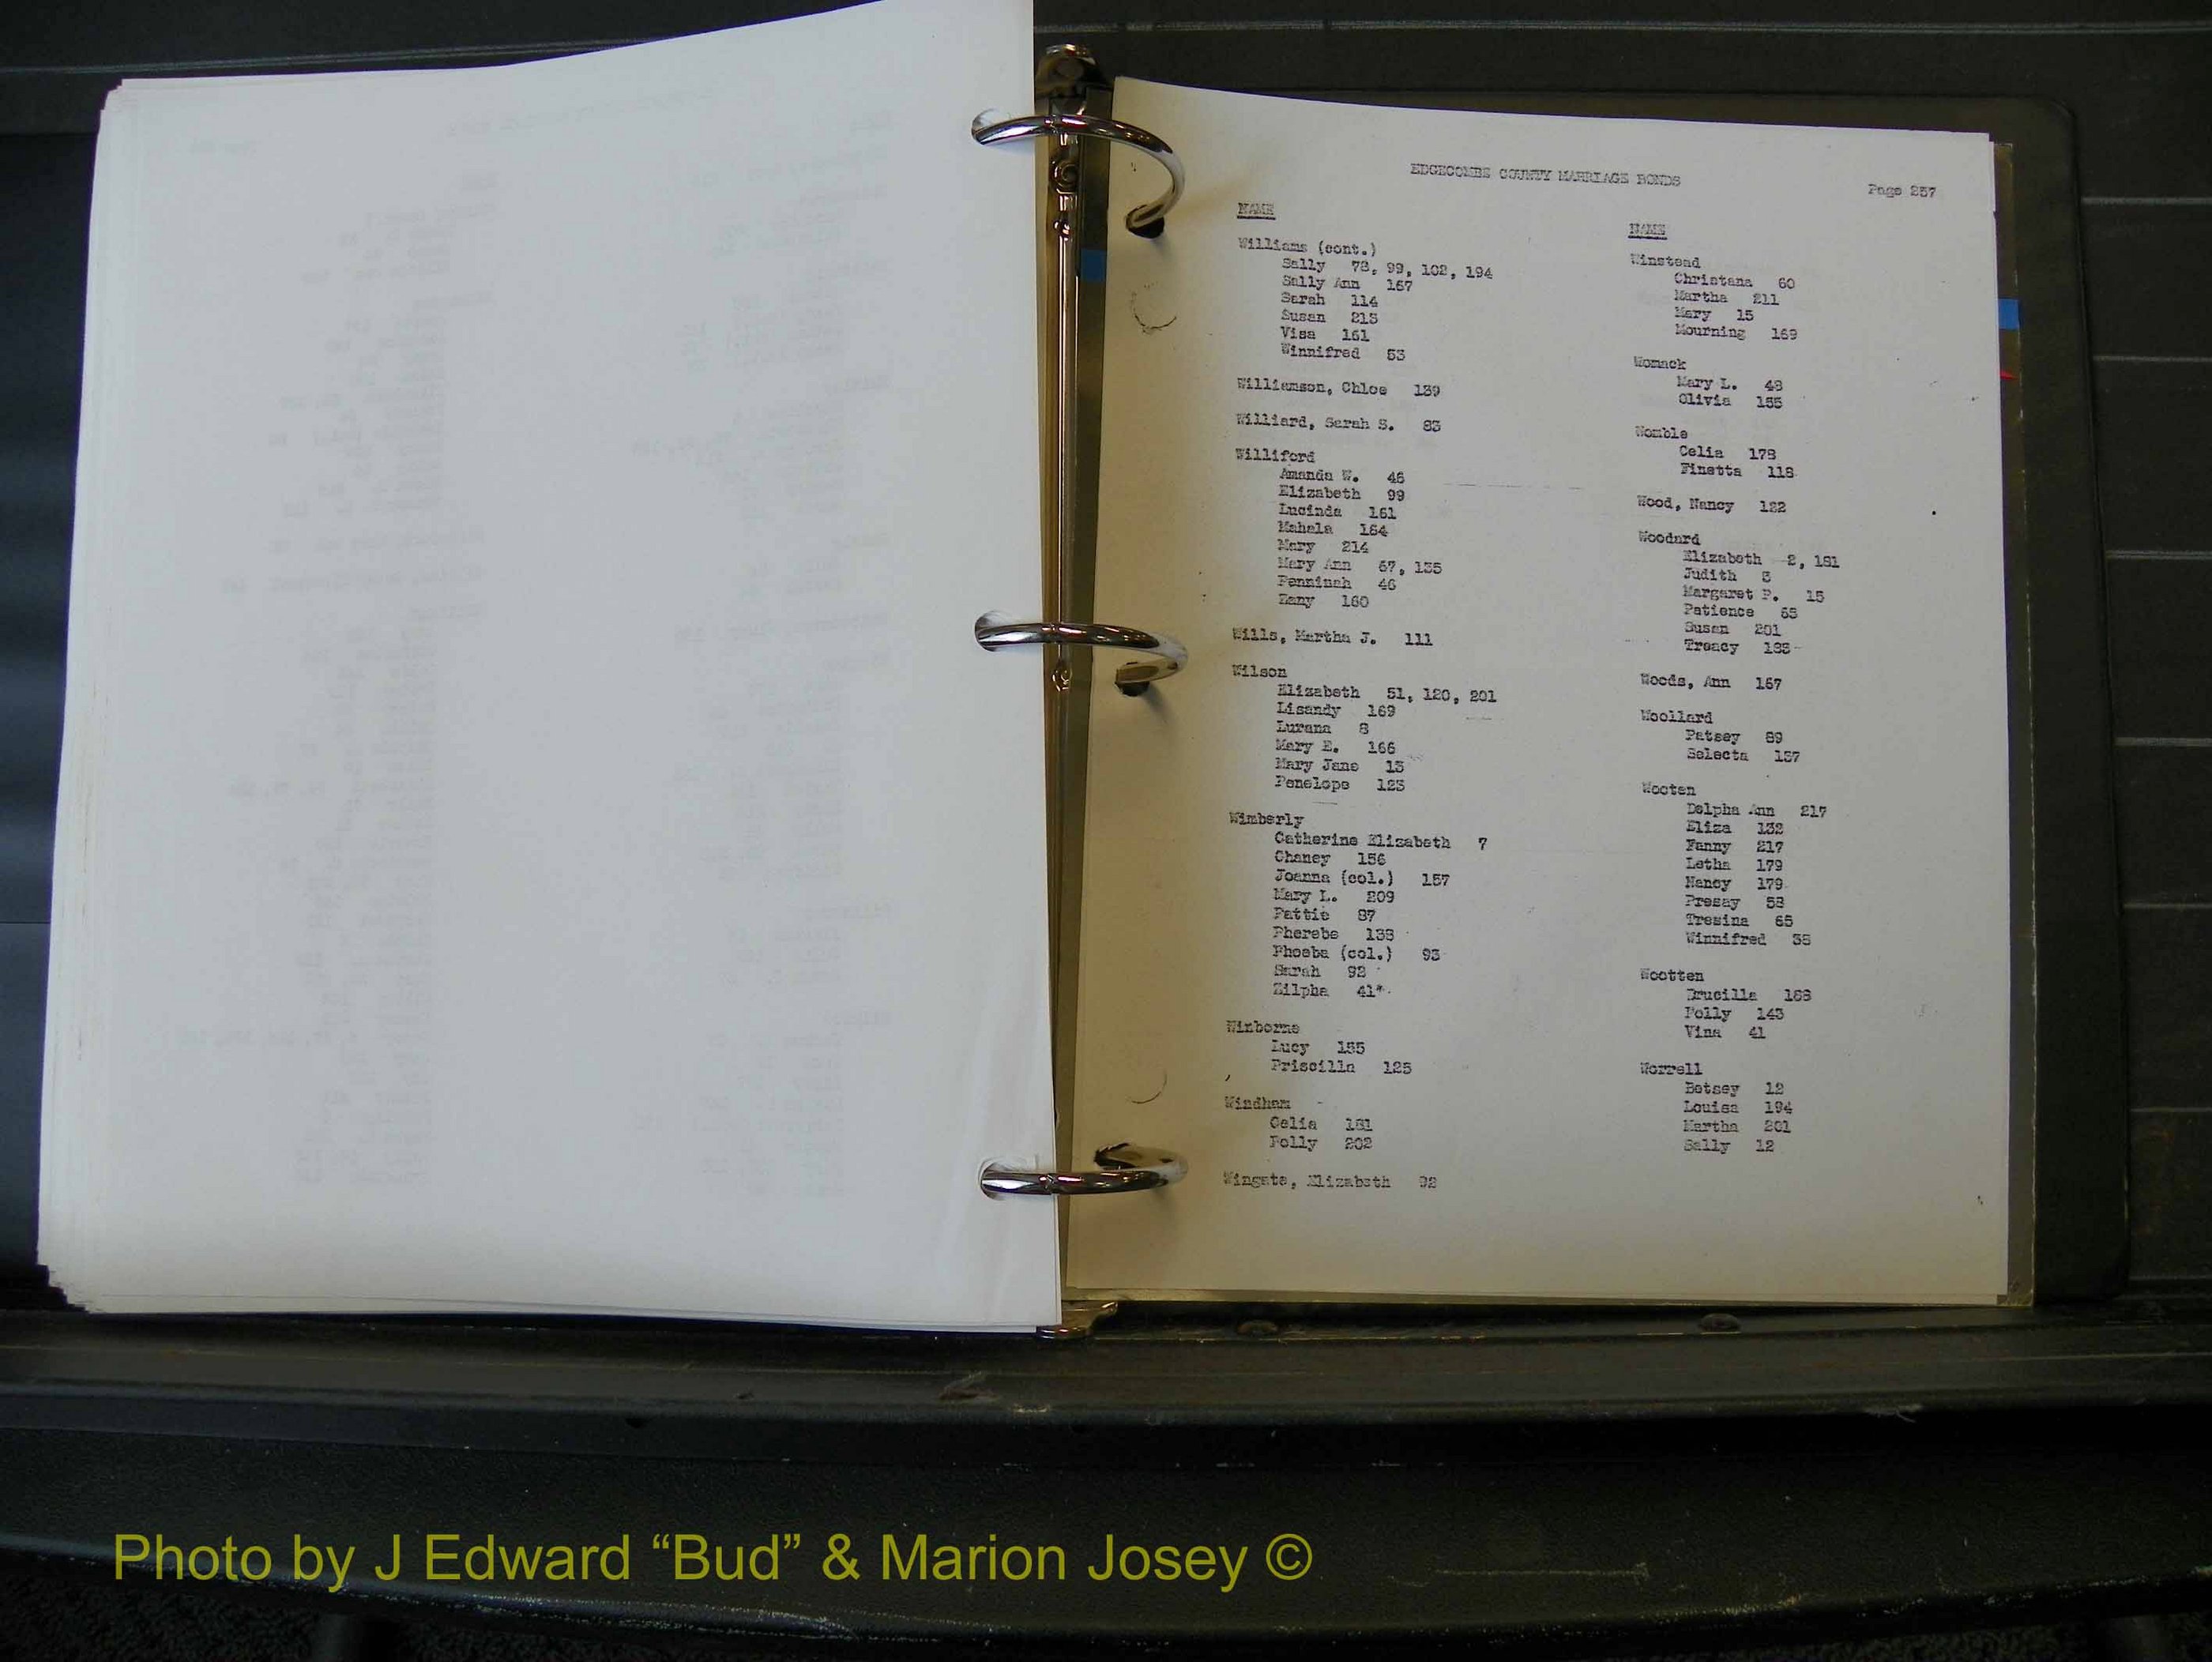 EDGECOMBE COUNTY MARRIAGE BONDS
Page 257
NAME
Williams (cont.)
Sally 78, 99, 102, 194
Sally Ann 167
Sarah 114
Susan 215
Visa 161
Winnifred 53
Williamson, Chloe 139
Williard, Sarah S. 83
Williford
Amanda W. 46
Elizabeth 99
Lucinda 161
Mahala 164
Mary 214
Mary Ann 67, 135
Penninah 46
Zany 160
Wills, Martha J. 111
Wilson
Elizabeth 51, 120, 201
Lisandy 169
Lurana 8
Mary E. 166
Mary Jane 13
Penelope 123
Wimberly
Catherine Elizabeth 7
Chaney 156
Joanna (col.) 157
Mary L. 209
Pattie 87
Pherebe 138
Phoebe (col.) 93
Sarah 92
Zilpha 41*
Winborne
Lucy 155
Priscilla 125
Windham
Celia 181
Polly 202
Wingate, Elizabeth 92
NAME
Winstead
Christana 60
Martha 211
Mary 15
Mourning 169
Womack
Mary L. 48
Olivia 155
Womble
Celia 178
Finetta 118
Wood, Nancy 122
Woodard
Elizabeth 2, 181
Judith
Margaret P. 15
Patience
Susan 201
Treacy
Woods, Ann 167
Woollard
Patsey 89
Selecta 157
Wooten
Delpha Ann 217
Eliza 132
Fanny 217
Letha 179
Nancy 179
Presay 53
Tresina 65
Winnifred
Wootten
Drucilla
Polly 143
Vina 41
Worrell
Betsey 12
Louisa 194
Martha 201
Sally 12
Photo by J Edward “Bud” & Marion Josey ©